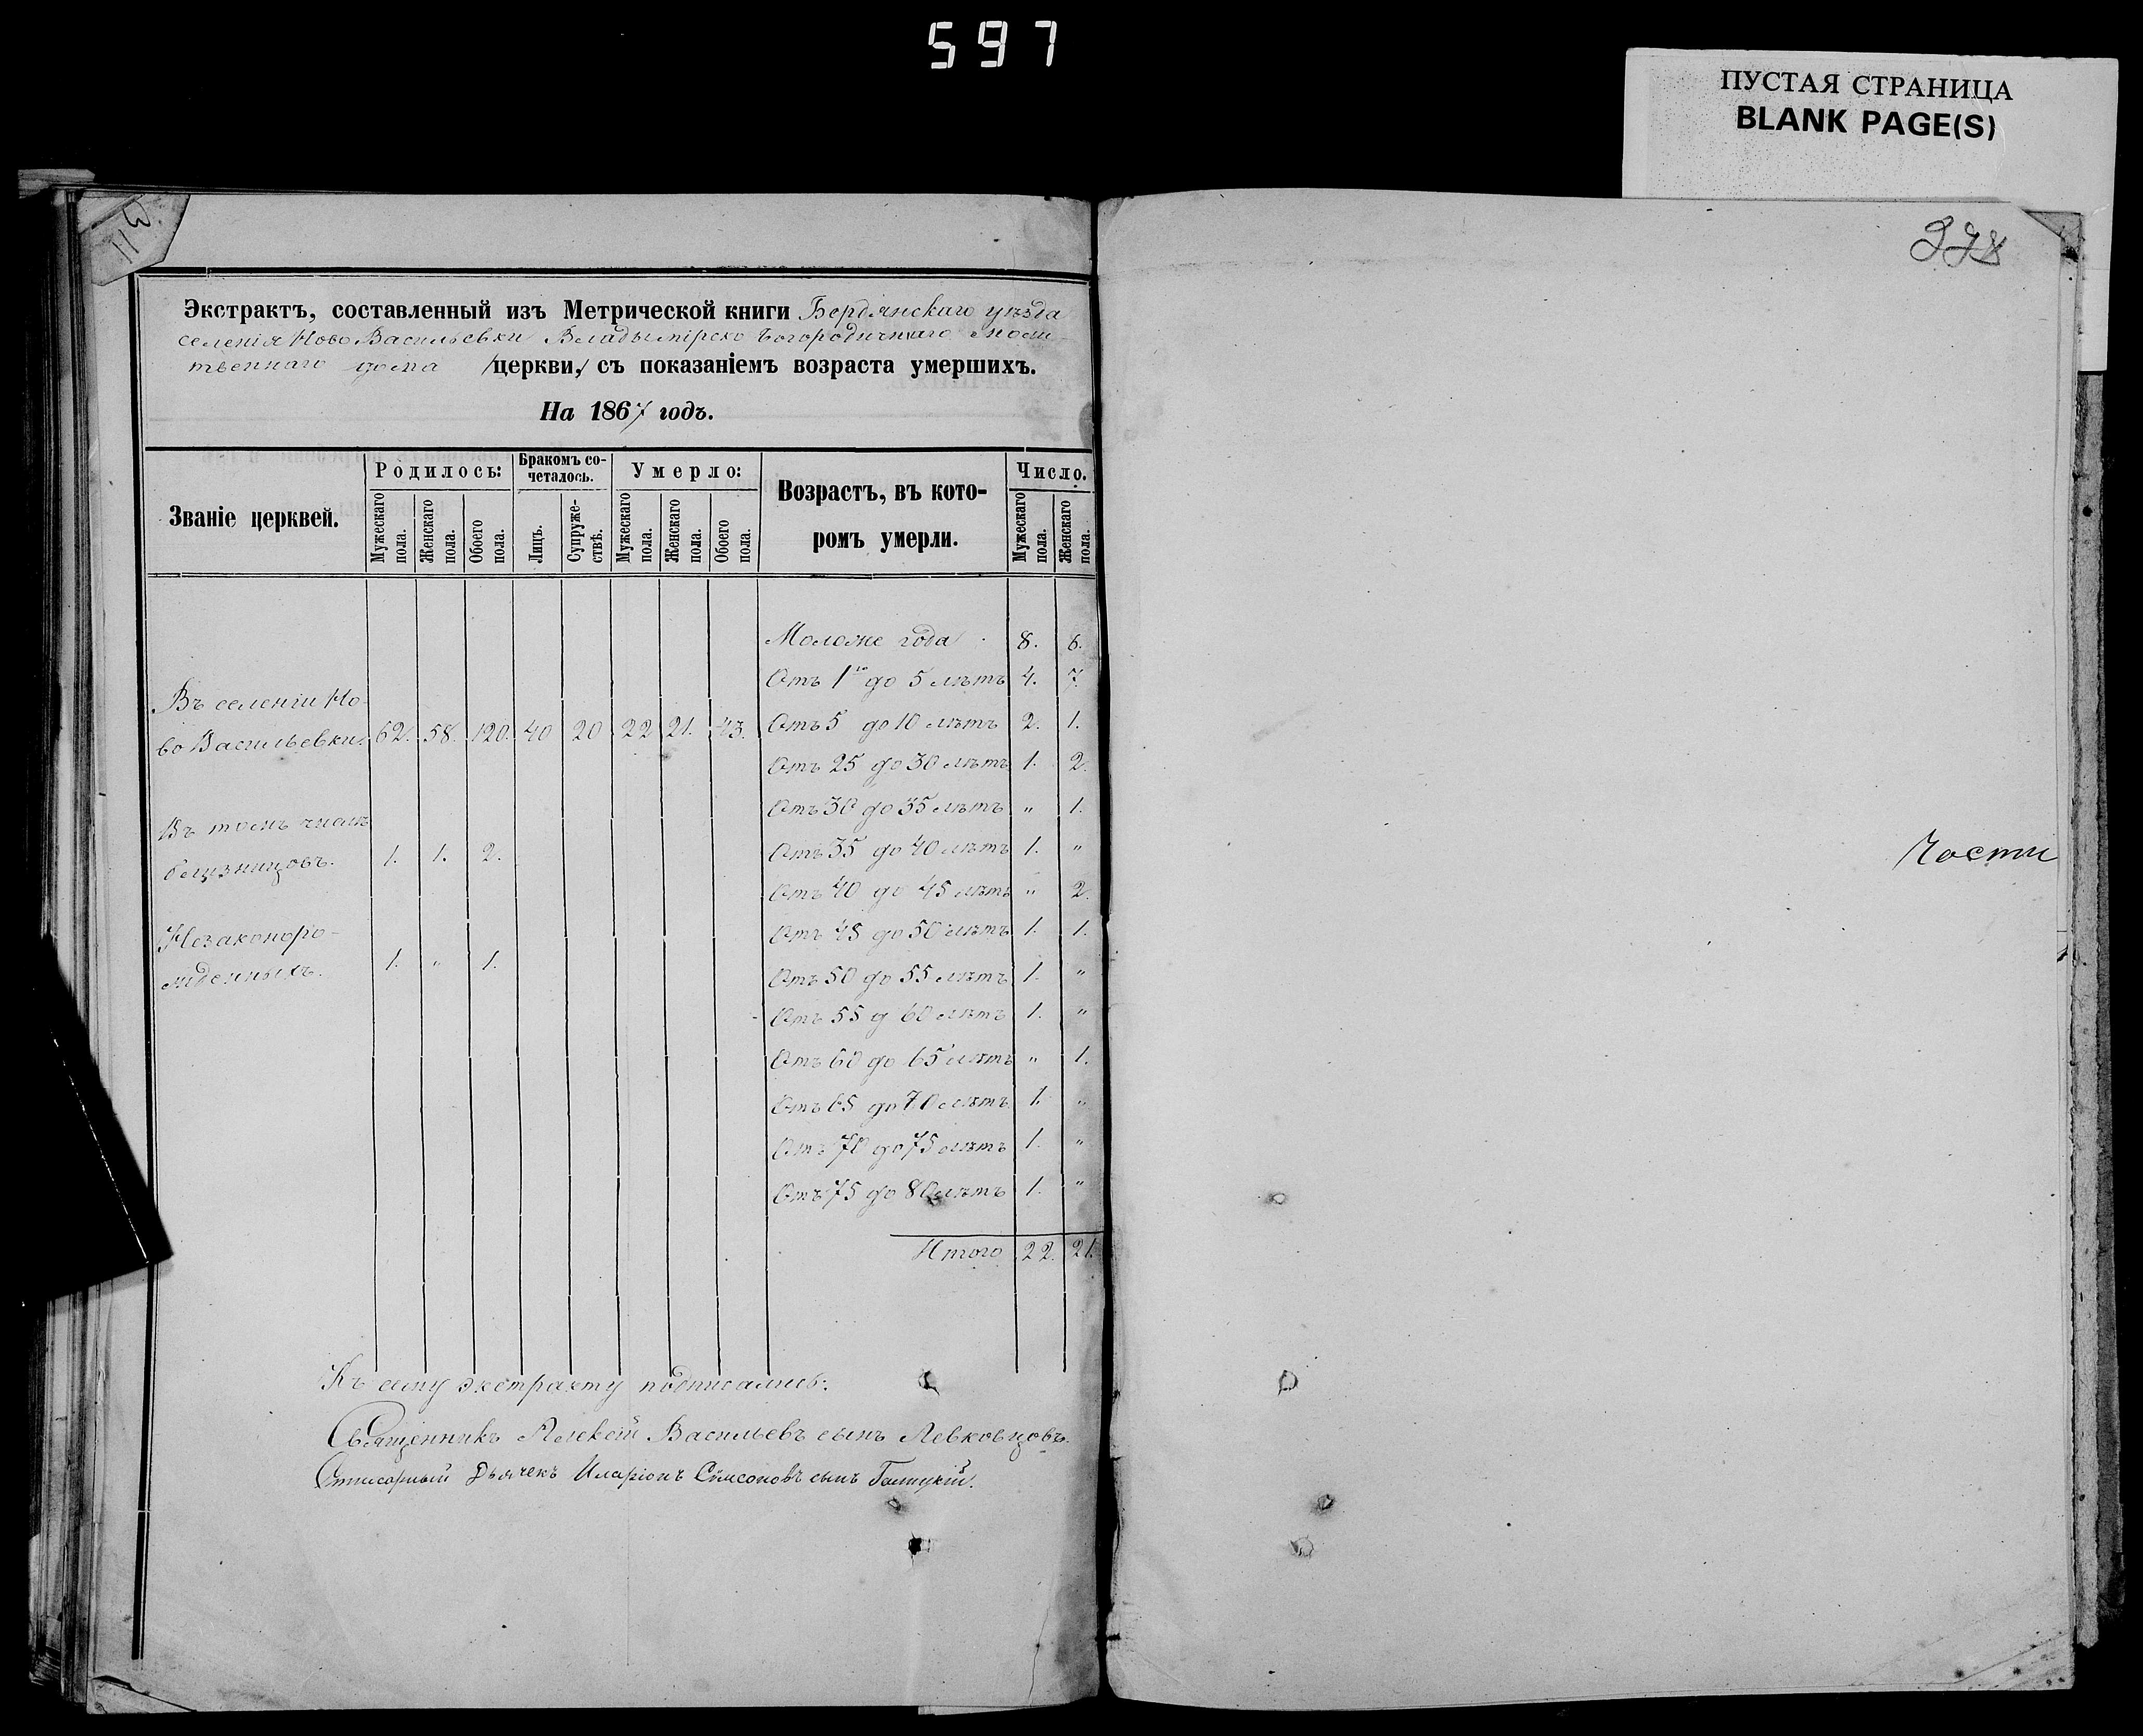 597
ПУСТАЯ СТРАНИЦА
BLANK PAGE(S)
Экстрактъ, составленный изъ Метрической книги Бердянскаго уѣзда
селенія Ново Васильевки Владымірско Богородичнаго молит-
твеннаго дома /церкви,/ съ показаніемъ возраста умершихъ.
На 1867 годъ.
Званіе церквей.
Родилось:
Мужескаго пола.
Женскаго пола.
Обоего пола.
Бракомъ со-
четалось.
Лицъ.
Супруже-
ствѣ.
Умерло:
Мужескаго пола.
Женскаго пола.
Обоего пола.
Возрастъ, въ кото-
ромъ умерли.
Число.
Мужескаго пола.
Женскаго пола.
Моложе года 8. 6.
Отъ 1го до 5 лѣтъ 4. 7.
Въ селеніи Но-
во Васильевки. 62. 58. 120. 40 20 22 21. 43. Отъ 5 до 10 лѣтъ 2. 1.
Отъ 25 до 30 лѣтъ 1. 2.
Отъ 30 до 35 лѣтъ " 1.
Въ томъ числѣ
близницовъ. 1. 1. 2. Отъ 35 до 40 лѣтъ 1. "
Отъ 40 до 45 лѣтъ " 2.
Незаконоро-
жденныхъ. 1. " 1.
Отъ 45 до 50 лѣтъ 1. 1.
Отъ 50 до 55 лѣтъ 1. "
Отъ 55 д 60 лѣтъ 1. "
Отъ 60 до 65 лѣтъ " 1.
Отъ 65 до 70 лѣтъ 1. "
Отъ 70 до 75 лѣтъ 1. "
Отъ 75 до 80 лѣтъ 1. "
Итого 22. 21.
Къ сему экстракту подписались:
Священникъ Алексій Васильевъ сынъ Левковцовъ.
Дьячекъ Иларіонъ Симеоновъ сынъ
Части